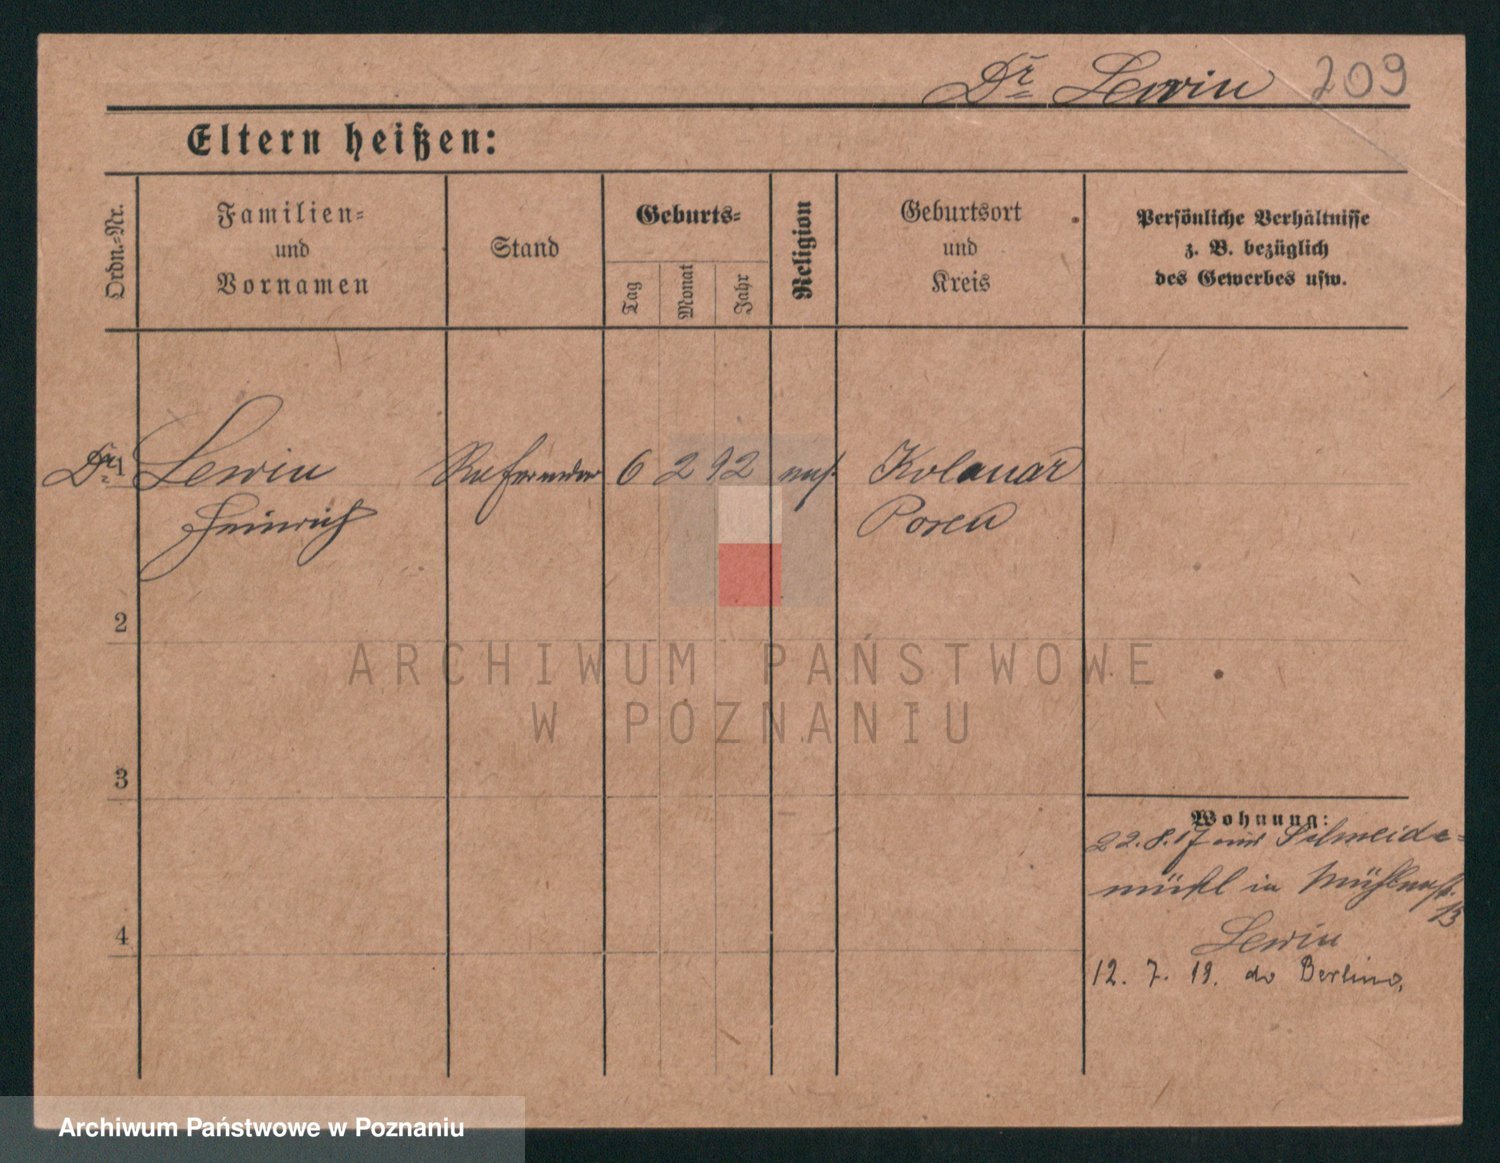 Dr. Lewin 209
Eltern heißen:
Ordn.-Nr.
Familien-
und
Vornamen
Stand
Geburts-
Tag
Monat
Jahr
Religion
Geburtsort
und
Kreis
Persönliche Verhältnisse
z. B. bezüglich
des Gewerbes usw.
Dr. 1 Lewin Referendar 6 2 92 mos. Kolmar
Heinrich Posen
2
3
4
Wohnung:
22.8.17 aus Schneide-
mühl in Mühlenstr.
13
Lewin
12. 7. 19. do Berlina,
ARCHIWUM PAŃSTWOWE
W POZNANIU
Archiwum Państwowe w Poznaniu